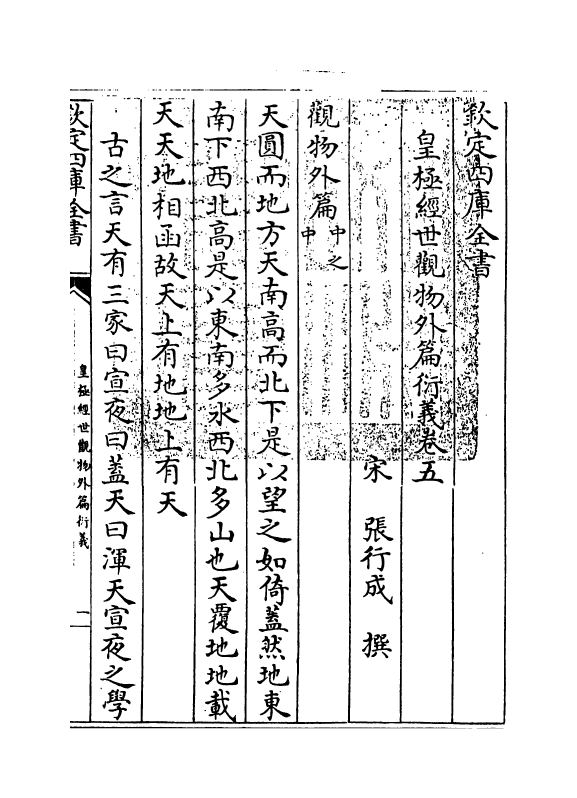 欽定四庫全書
皇極經世觀物外篇衍義卷五
宋 張行成 撰
觀物外篇中之中
天圓而地方天南高而北下是以望之如倚蓋然地東
南下西北高是以東南多水西北多山也天覆地地載
天天地相函故天上有地地上有天
古之言天有三家曰宣夜曰蓋天曰渾天宣夜之學
欽定四庫全書
皇極經世觀物外篇衍義